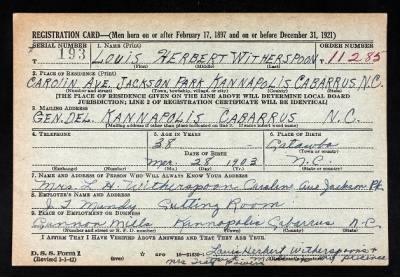 REGISTRATION CARD—(Men born on or after February 17, 1897 and on or before December 31, 1921)
SERIAL NUMBER 1. NAME (Print) ORDER NUMBER
T 193 LOUIS HERBERT WITHERSPOON 11285
(First) (Middle) (Last)
2. PLACE OF RESIDENCE (Print)
CAROLIN AVE. JACKSON PARK KANNAPOLIS CABARRUS N.C.
(Number and street) (Town, township, village, or city) (County) (State)
[THE PLACE OF RESIDENCE GIVEN ON THE LINE ABOVE WILL DETERMINE LOCAL BOARD
JURISDICTION; LINE 2 OF REGISTRATION CERTIFICATE WILL BE IDENTICAL]
3. MAILING ADDRESS
GEN. DEL. KANNAPOLIS CABARRUS N.C.
(Mailing address if other than place indicated on line 2. If same insert word same)
4. TELEPHONE 5. AGE IN YEARS 6. PLACE OF BIRTH
38 Catawba
DATE OF BIRTH (Town or county)
Mar. 28 1903 N.C.
(Mo.) (Day) (Yr.) (State or country)
7. NAME AND ADDRESS OF PERSON WHO WILL ALWAYS KNOW YOUR ADDRESS
Mrs. L. H. Witherspoon Caroline Ave Jackson Pk.
8. EMPLOYER'S NAME AND ADDRESS
J. T. Mundy Cutting Room
9. PLACE OF EMPLOYMENT OR BUSINESS
Cannon Mills Kannapolis Cabarrus N.C.
(Number and street or R. F. D. number) (Town) (County) (State)
I AFFIRM THAT I HAVE VERIFIED ABOVE ANSWERS AND THAT THEY ARE TRUE.
D. S. S. Form 1
(Revised 1-1-42) Louis Herbert Witherspoon